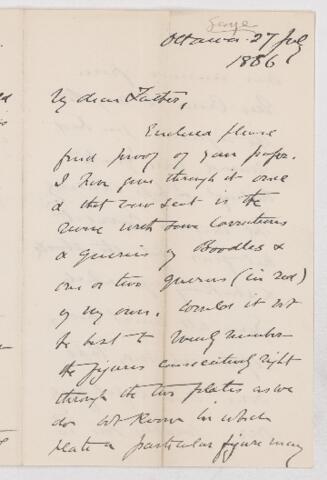 George
Ottawa 27 July
1886
My dear Father,
Enclosed please
find proof of your paper.
I have gone through it once
& that now sent is the
revise with some corrections
& queries of Boodles &
one or two queries (in red)
of my own. Would it not
be best to number
the figures consecutively right
through the two plates as we
do not know in which
plate a particular figure may